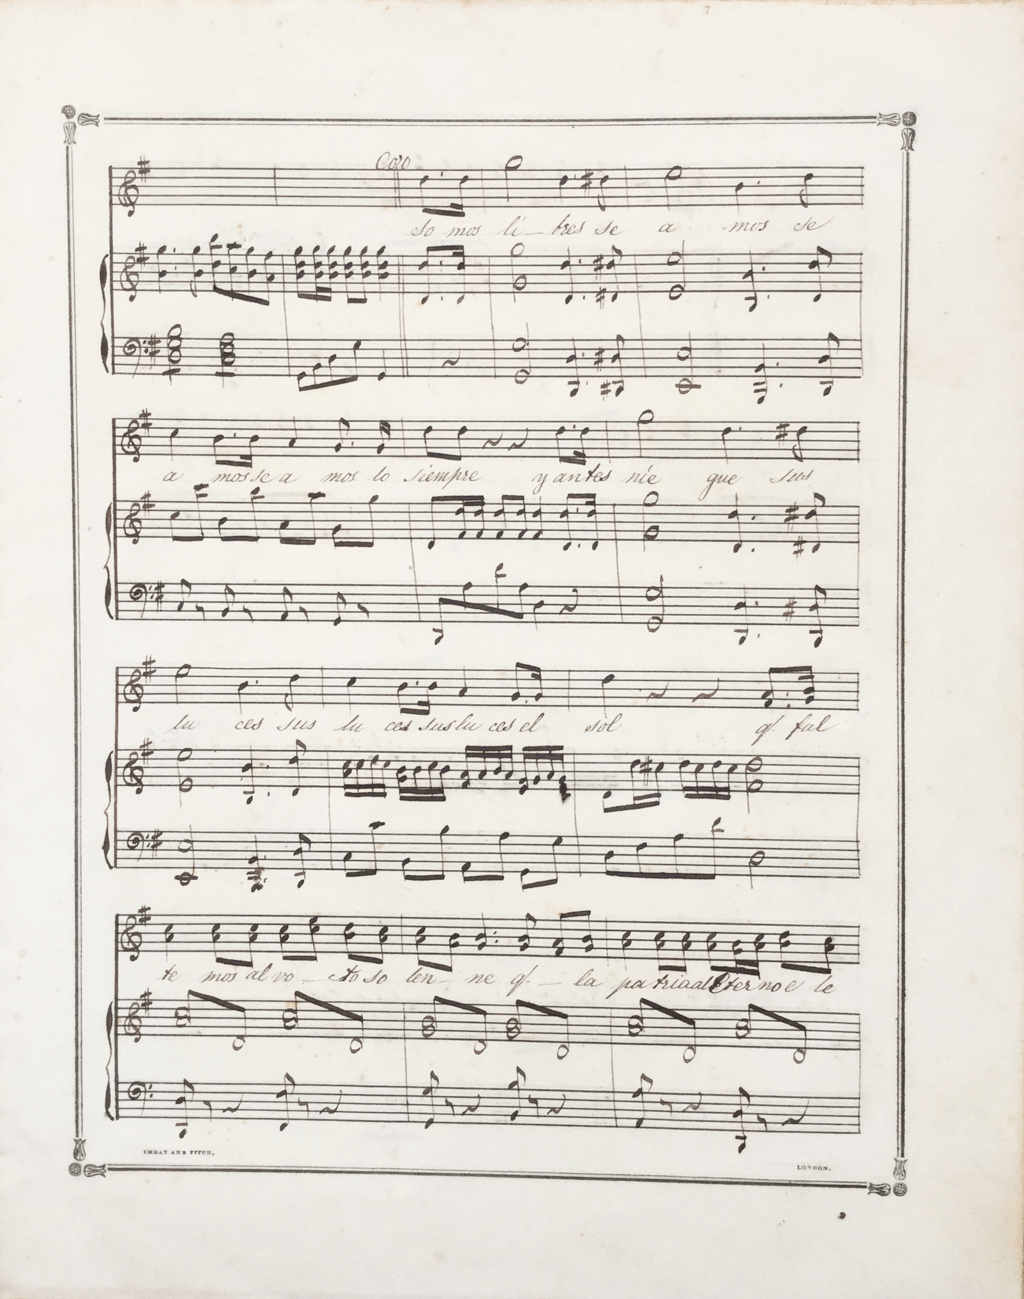 Coro
so mos li_bres se a mos se
a mos se a mos lo siempre y antes nie gue sus
lu ces sus lu ces sus lu ces el sol q! fal
te mos al vo_to so len_ ne q!_ la patria al Eterno e le
LONDON.